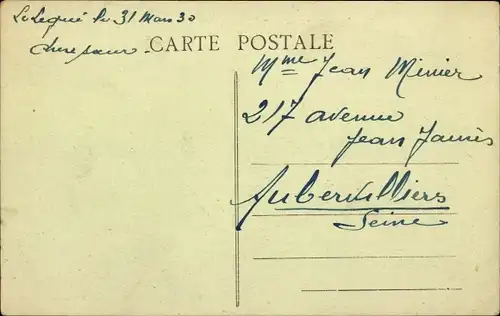 Le Legué le 31 Mars 30
chère sœur
CARTE POSTALE
Mme Jean Minier
217 avenue
Jean Jaurès
Aubervilliers
Seine